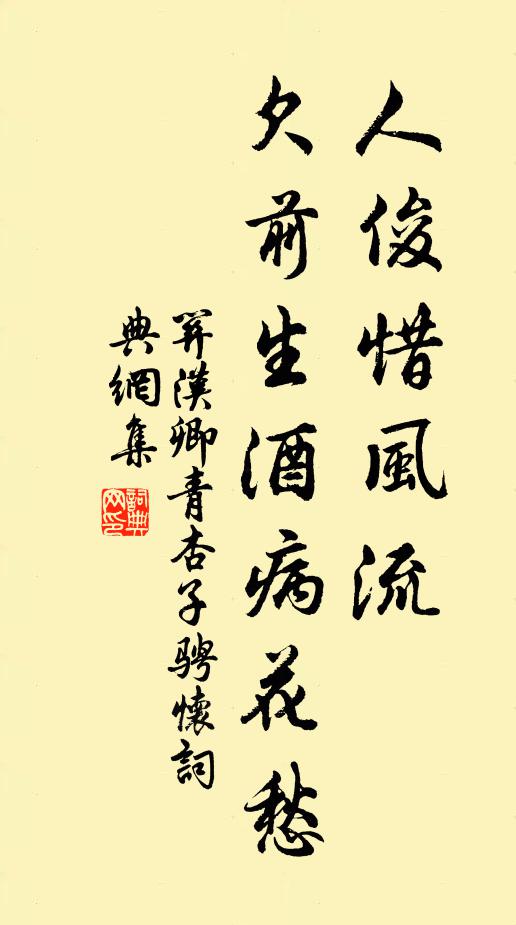 人俊惜風流
欠前生酒病花愁
關漢卿青杏子騁懷詞
典網集
詞典網印